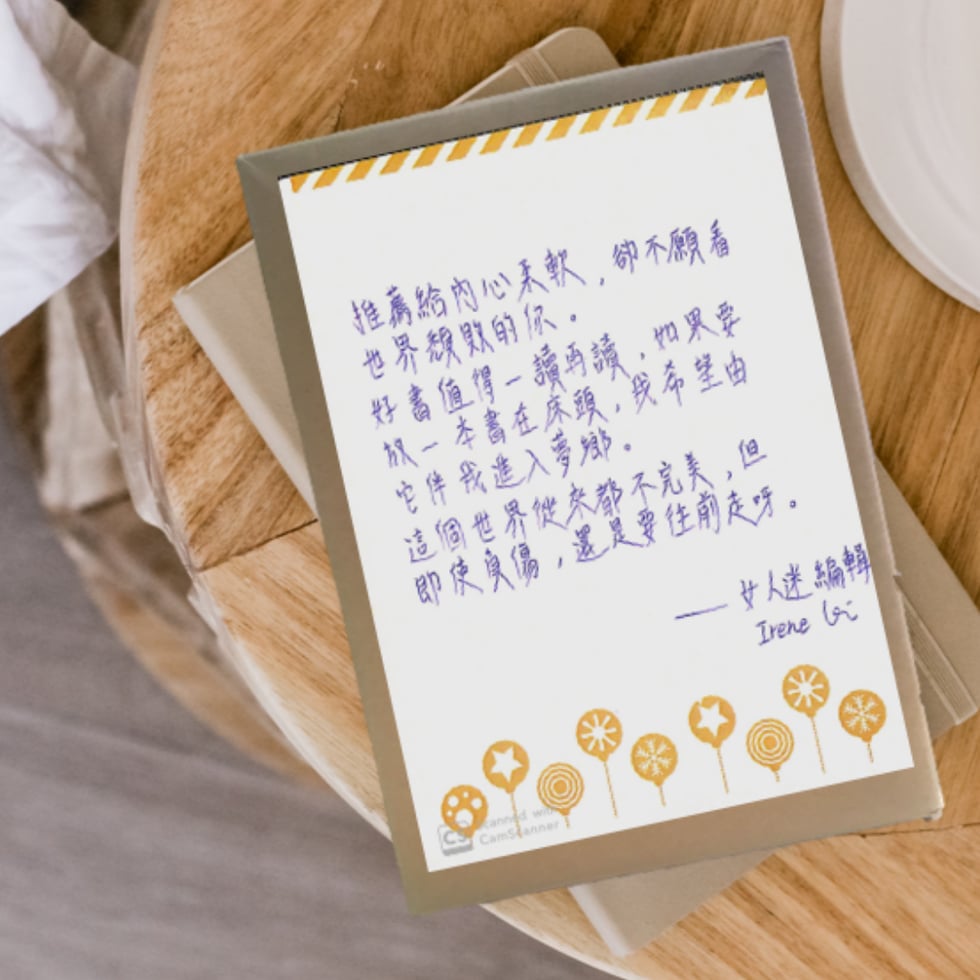 推薦給內心柔軟，卻不願看
世界頹敗的你。
好書值得一讀再讀，如果要
放一本書在床頭，我希望由
它伴我進入夢鄉。
這個世界從來都不完美，但
即使負傷，還是要往前走呀。
—— 女人迷編輯
Irene
CS Scanned with
CamScanner